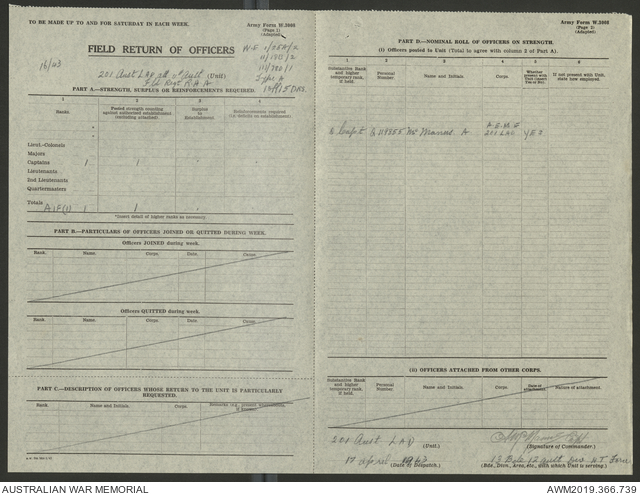 TO BE MADE UP TO AND FOR SATURDAY IN EACH WEEK.
Army Form W.3008
(Page 1)
(Adapted)
16/43
FIELD RETURN OF OFFICERS
W.E.
11/178/2
111/780/1
201 Aust LAD (Unit)
PART A.—STRENGTH, SURPLUS OR REINFORCEMENTS REQUIRED.
1 2 3 4
Rank.
Posted strength counting against authorised establishment (including attached).
Surplus to Establishment.
Reinforcements required (i.e. deficits on establishment).
Lieut.-Colonels
Majors
Captains 1 1
Lieutenants
2nd Lieutenants
Quartermasters
Totals
AIF(1) 1 1
*Insert detail of higher ranks as necessary.
PART B.—PARTICULARS OF OFFICERS JOINED OR QUITTED DURING WEEK.
Officers JOINED during week.
Rank. Name. Corps. Date. Cause.
Officers QUITTED during week.
Rank. Name. Corps. Date. Cause.
PART C.—DESCRIPTION OF OFFICERS WHOSE RETURN TO THE UNIT IS PARTICULARLY REQUESTED.
Rank. Name and Initials. Corps.
Army Form W.3008
(Page 2)
(Adapted)
PART D.—NOMINAL ROLL OF OFFICERS ON STRENGTH.
(i) Officers posted to Unit (Total to agree with column 2 of Part A).
1 2 3 4 5 6
Substantive Rank and higher temporary rank, if held.
Personal Number
Name and Initials.
Corps.
Whether present with Unit (insert Yes or No)
If not present with Unit, state how employed.
A.E.M.E
Capt A 201 LAD YES
(ii) OFFICERS ATTACHED FROM OTHER CORPS.
Substantive Rank and higher temporary rank, if held.
Personal Number
Name and Initials.
Corps.
Date of attachment.
Nature of attachment.
201 Aust LAD (Unit.)
(Signature of Commander.)
17 April 1943
(Date of Despatch.)
(Bde., Divn., Area, etc., with which Unit is serving.)
AUSTRALIAN WAR MEMORIAL
AWM2019.366.739